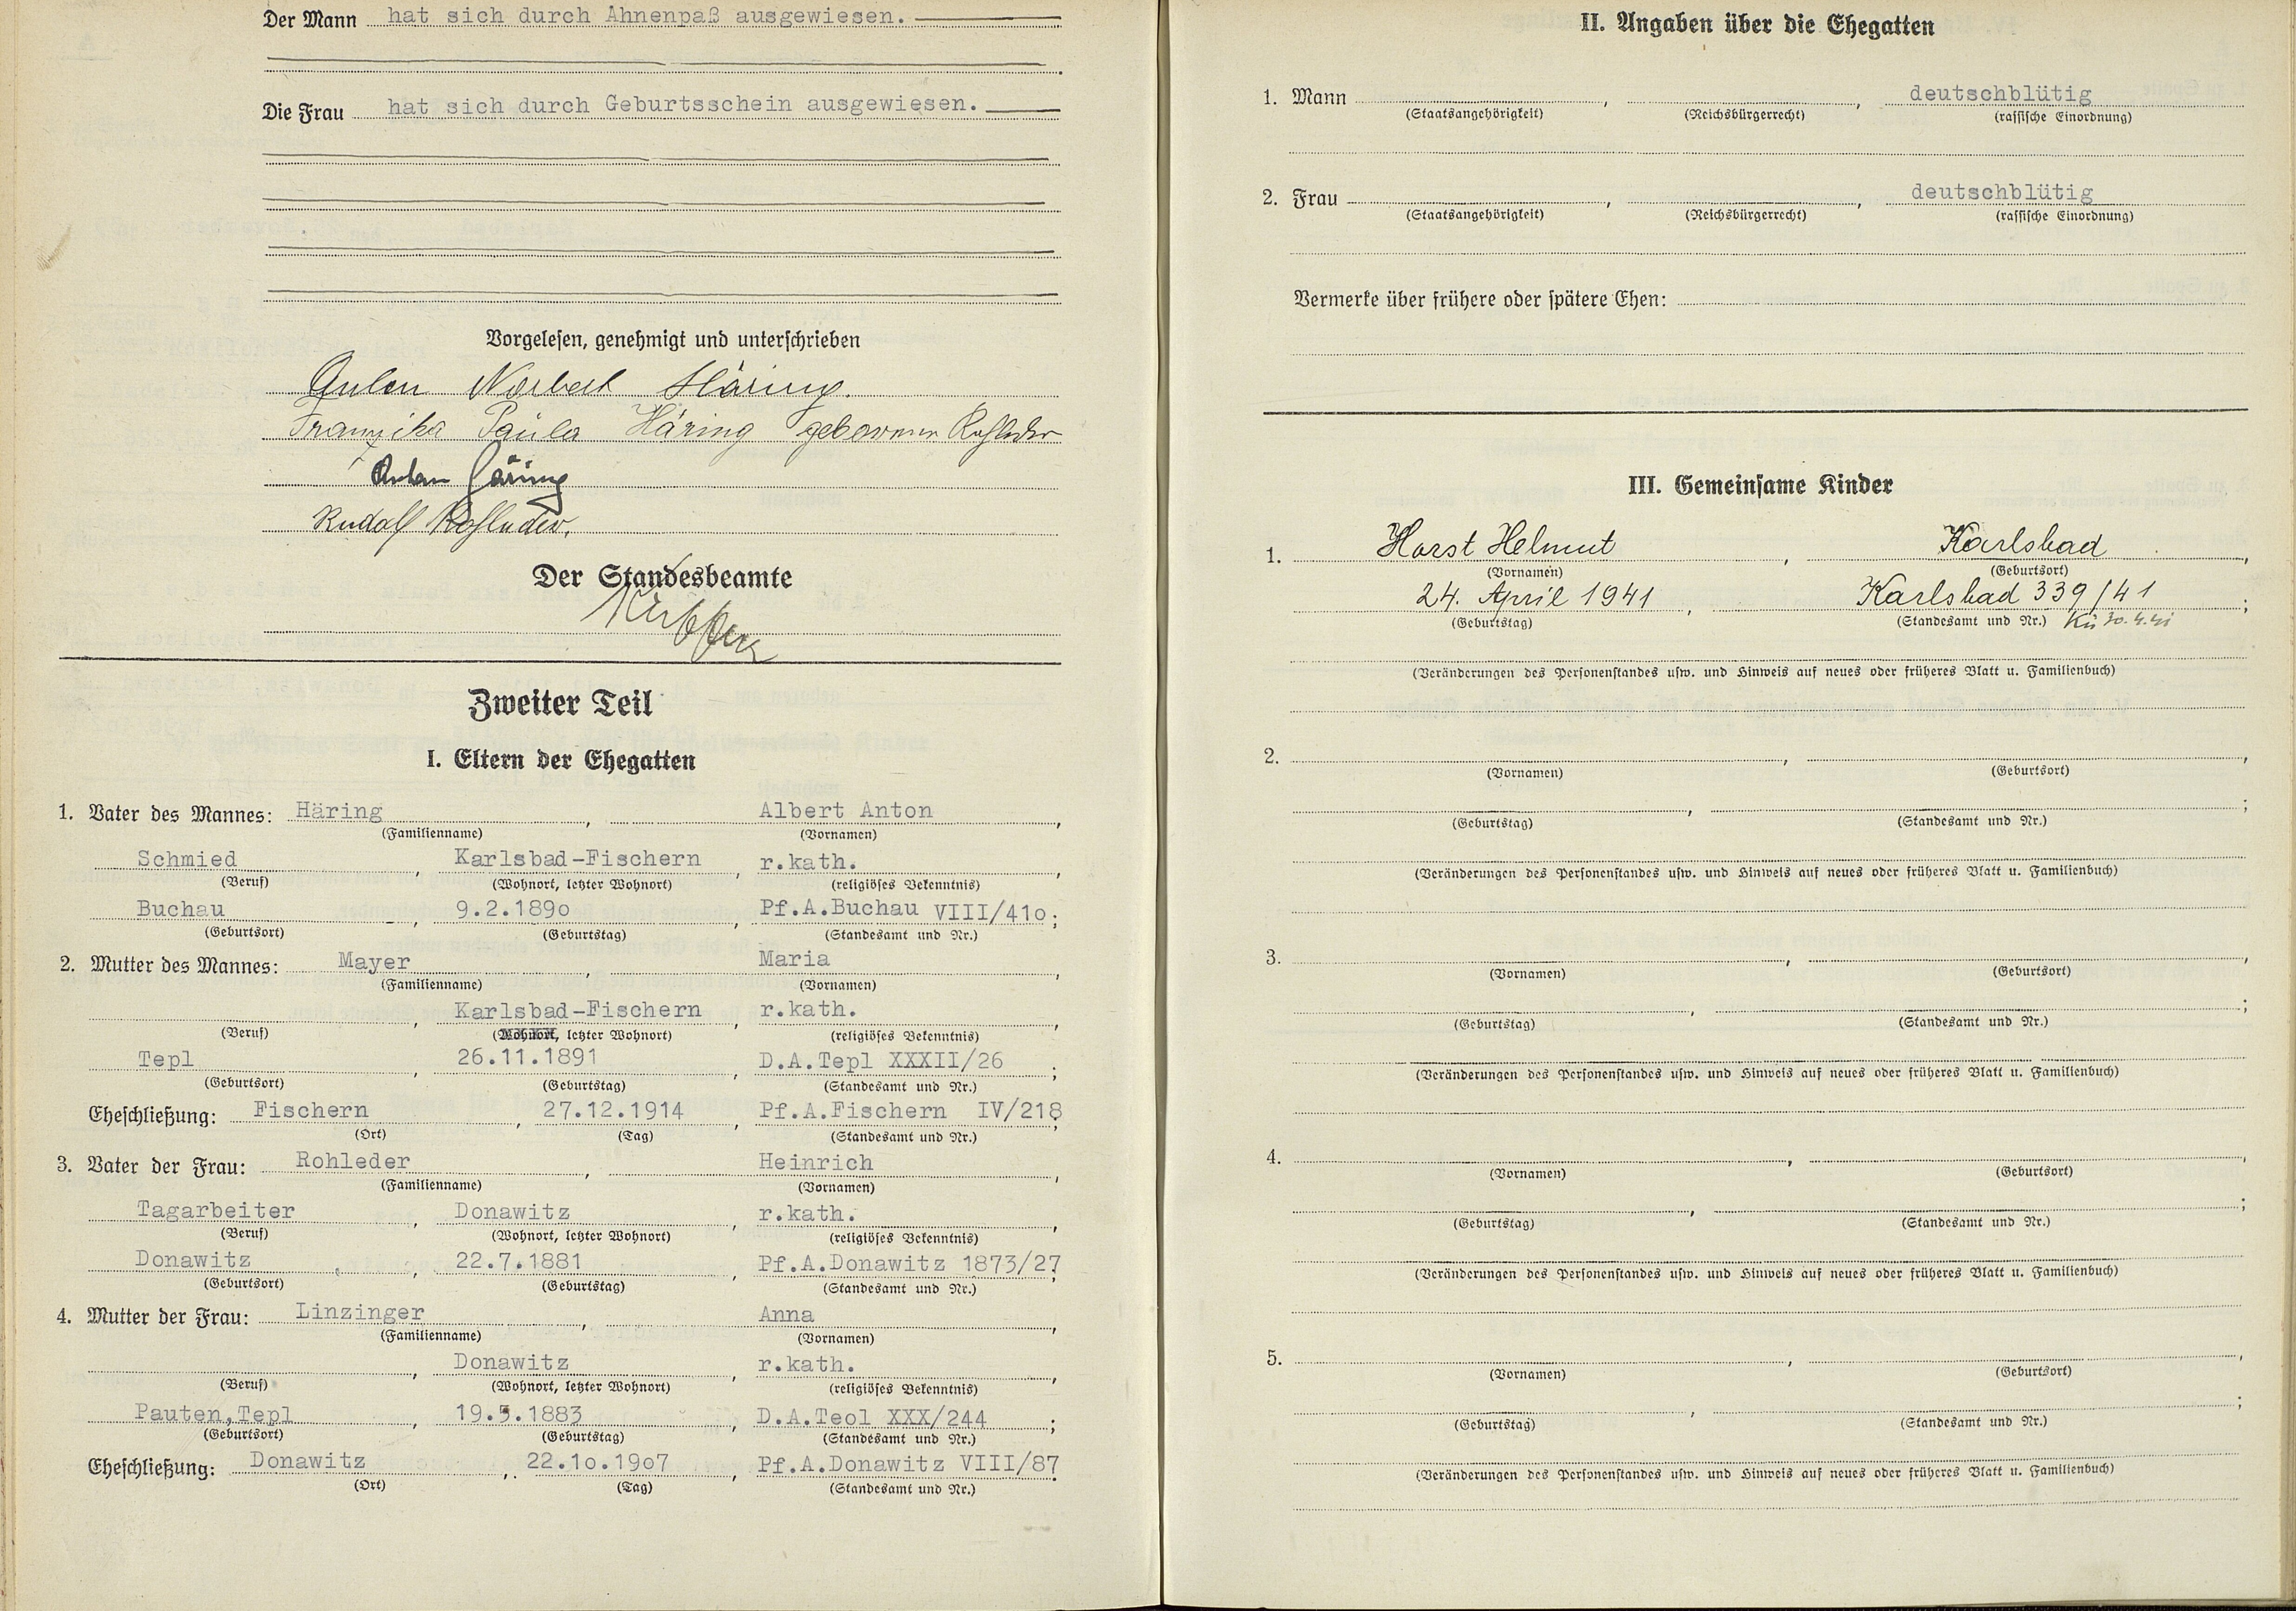 Der Mann hat sich durch Ahnenpaß ausgewiesen.
Die Frau hat sich durch Geburtsschein ausgewiesen.
Vorgelesen, genehmigt und unterschrieben
Anton Norbert Häring.
Franziska Paula Häring geborene Rohleder
Anton Häring
Rudolf Rohleder.
Der Standesbeamte
Zweiter Teil
I. Eltern der Ehegatten
1. Vater des Mannes: Häring, Albert Anton,
(Familienname) (Vornamen)
Schmied, Karlsbad-Fischern, r.kath.,
(Beruf) (Wohnort, letzter Wohnort) (religiöses Bekenntnis)
Buchau, 9.2.1890, Pf.A.Buchau VIII/41o;
(Geburtsort) (Geburtstag) (Standesamt und Nr.)
2. Mutter des Mannes: Mayer, Maria,
(Familienname) (Vornamen)
, Karlsbad-Fischern, r.kath.,
(Beruf) (Wohnort, letzter Wohnort) (religiöses Bekenntnis)
Tepl, 26.11.1891, D.A.Tepl XXXII/26;
(Geburtsort) (Geburtstag) (Standesamt und Nr.)
Eheschließung: Fischern, 27.12.1914, Pf.A.Fischern IV/218;
(Ort) (Tag) (Standesamt und Nr.)
3. Vater der Frau: Rohleder, Heinrich,
(Familienname) (Vornamen)
Tagarbeiter, Donawitz, r.kath.,
(Beruf) (Wohnort, letzter Wohnort) (religiöses Bekenntnis)
Donawitz, 22.7.1881, Pf.A.Donawitz 1873/27;
(Geburtsort) (Geburtstag) (Standesamt und Nr.)
4. Mutter der Frau: Linzinger, Anna,
(Familienname) (Vornamen)
, Donawitz, r.kath.,
(Beruf) (Wohnort, letzter Wohnort) (religiöses Bekenntnis)
Pauten,Tepl, 19.5.1883, D.A.Teol XXX/244;
(Geburtsort) (Geburtstag) (Standesamt und Nr.)
Eheschließung: Donawitz, 22.1o.19o7, Pf.A.Donawitz VIII/87.
(Ort) (Tag) (Standesamt und Nr.)
II. Angaben über die Ehegatten
1. Mann , , deutschblütig
(Staatsangehörigkeit) (Reichsbürgerrecht) (rassische Einordnung)
2. Frau , , deutschblütig
(Staatsangehörigkeit) (Reichsbürgerrecht) (rassische Einordnung)
Vermerke über frühere oder spätere Ehen:
III. Gemeinsame Kinder
1. Horst Helmut, Karlsbad,
(Vornamen) (Geburtsort)
24. April 1941, Karlsbad 339/41;
(Geburtstag) (Standesamt und Nr.) Kü 30.4.41
(Veränderungen des Personenstandes usw. und Hinweis auf neues oder früheres Blatt u. Familienbuch)
2. , ,
(Vornamen) (Geburtsort)
, ;
(Geburtstag) (Standesamt und Nr.)
(Veränderungen des Personenstandes usw. und Hinweis auf neues oder früheres Blatt u. Familienbuch)
3. , ,
(Vornamen) (Geburtsort)
, ;
(Geburtstag) (Standesamt und Nr.)
(Veränderungen des Personenstandes usw. und Hinweis auf neues oder früheres Blatt u. Familienbuch)
4. , ,
(Vornamen) (Geburtsort)
, ;
(Geburtstag) (Standesamt und Nr.)
(Veränderungen des Personenstandes usw. und Hinweis auf neues oder früheres Blatt u. Familienbuch)
5. , ,
(Vornamen) (Geburtsort)
, ;
(Geburtstag) (Standesamt und Nr.)
(Veränderungen des Personenstandes usw. und Hinweis auf neues oder früheres Blatt u. Familienbuch)